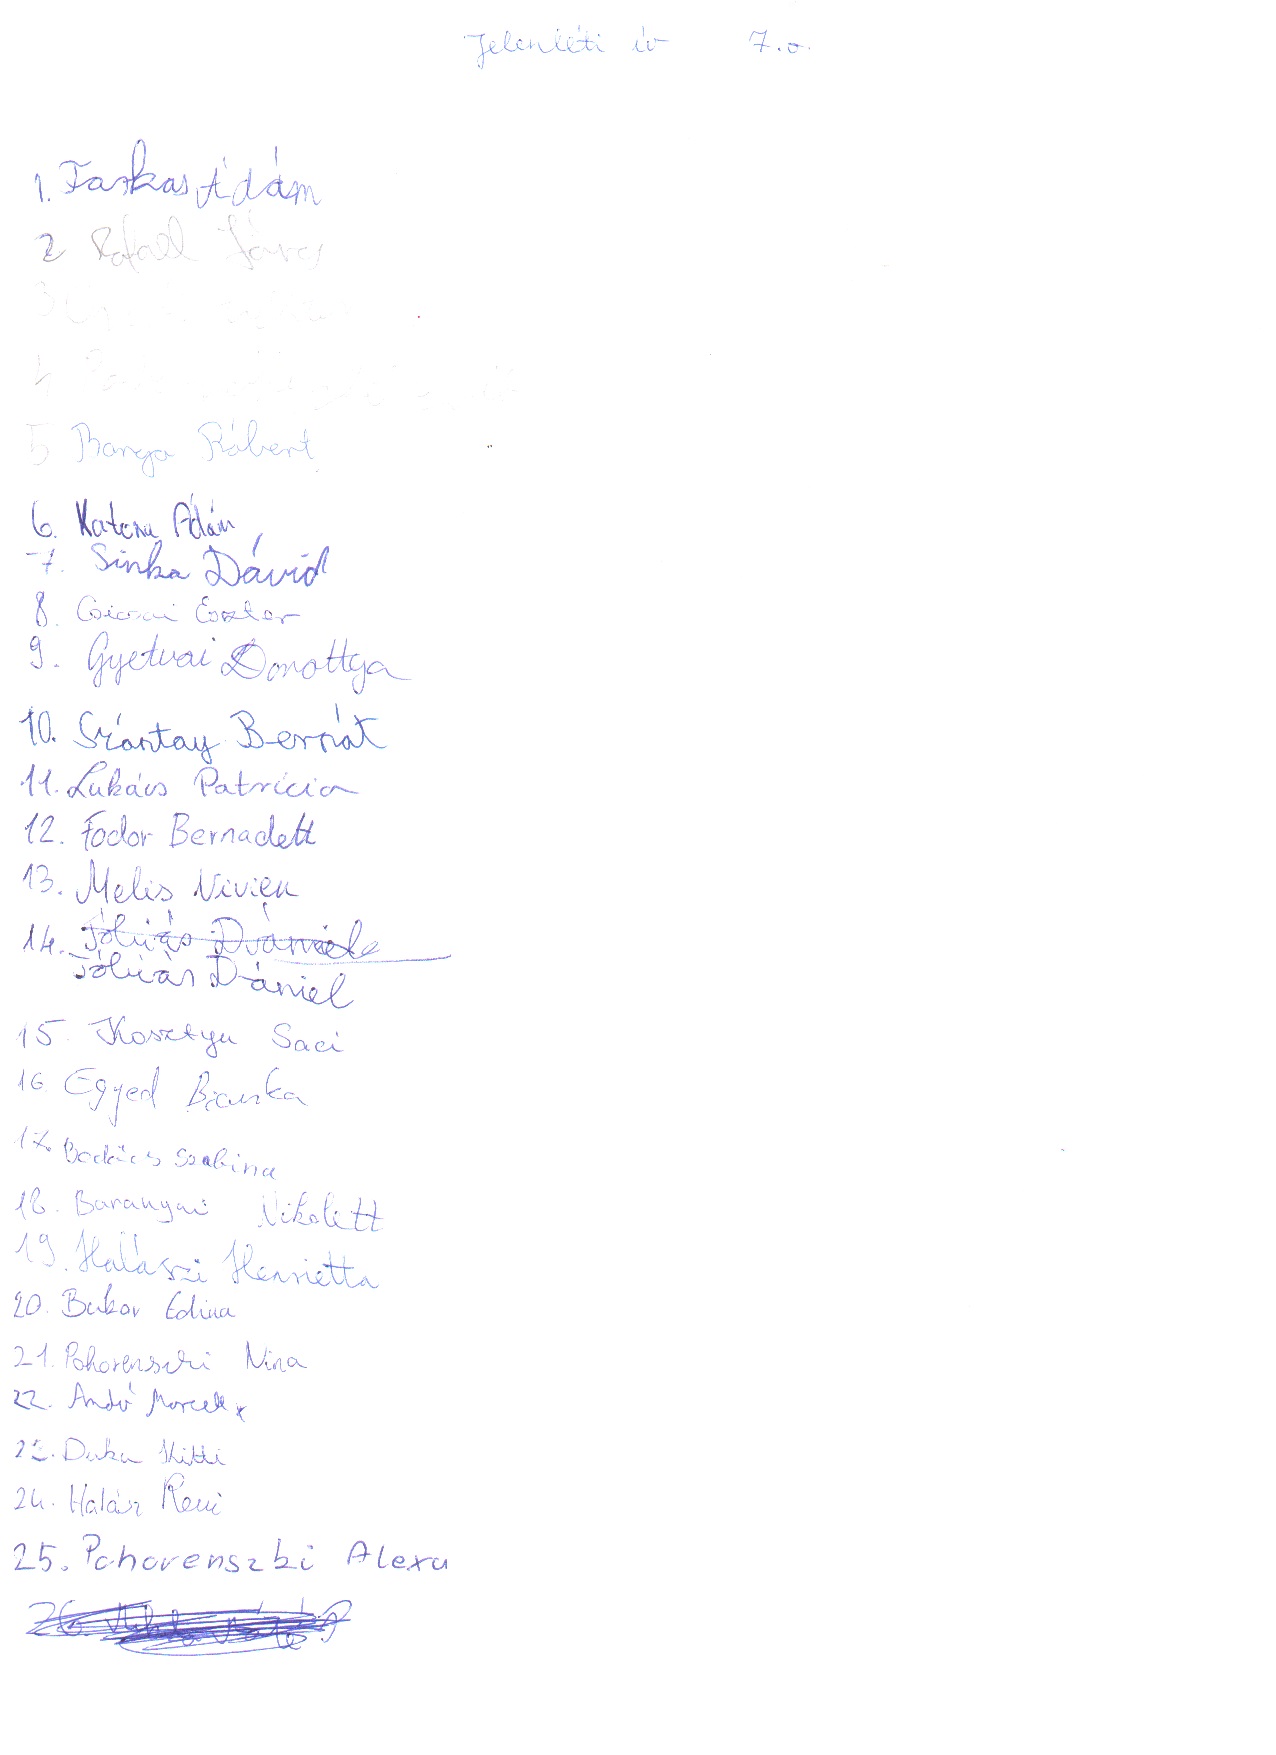 Jelenléti ív 7.o.
1. Farkas Ádám
2 Rafael János
3
4
5 Banga Róbert
6. Katona Ádám
7. Sinka Dávid
8. Csicsai Eszter
9. Gyetvai Dorottya
10. Szántay Bernát
11. Lukács Patrícia
12. Fodor Bernadett
13. Melis Vivien
14. Tóbiás Dániel
Tóbiás Dániel
15. Kosztyu Saci
16 Egyed Bianka
17. Szabina
18. Baranyai Nikolett
19. Halászi Henrietta
20. Bukov Edina
21. Pohorenszki Nina
22. Andó Marcell
23. Duka Kitti
24. Halász Reni
25. Pohorenszki Alexa
26.